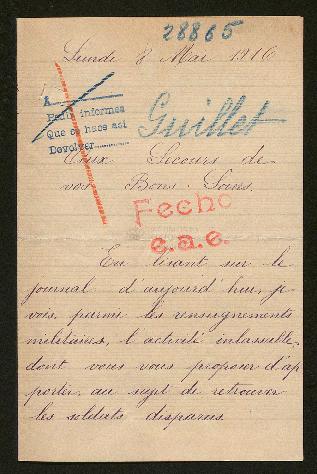 28865
Lundi 8 Mai 1916
A
Para informes
Que se hace así
Devolver
Guillet
Aux Secours de
vos Bons Soins.
Fecho
e.a.e.
En lisant sur le
journal d'aujourd'hui, je
vois, parmi les renseignements
militaires, l'activité inlassable,
dont vous vous proposer d'ap
porter, au sujet de retrouver
les soldats disparus